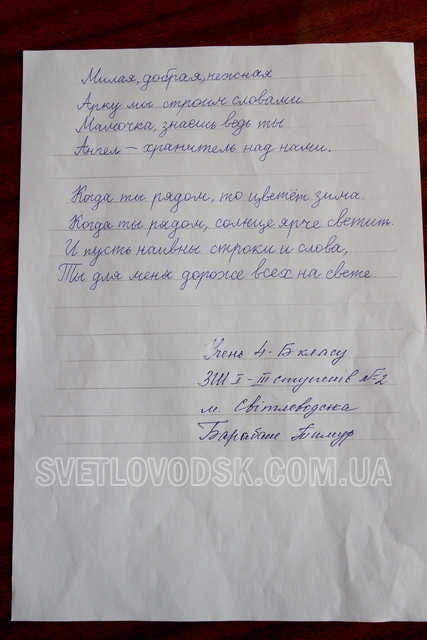 Милая, добрая, нежная
Арку мы строим словами
Мамочка, знаешь ведь ты
Ангел – хранитель над нами.
Когда ты рядом, то цветёт зима.
Когда ты рядом, солнце ярче светит.
И пусть наивны строки и слова,
Ты для меня дороже всех на свете.
Учень 4-Б класу
ЗШ I-III ступенів №2
м. Світловодська
Барабаш Тимур
SVETLOVODSK.COM.UA